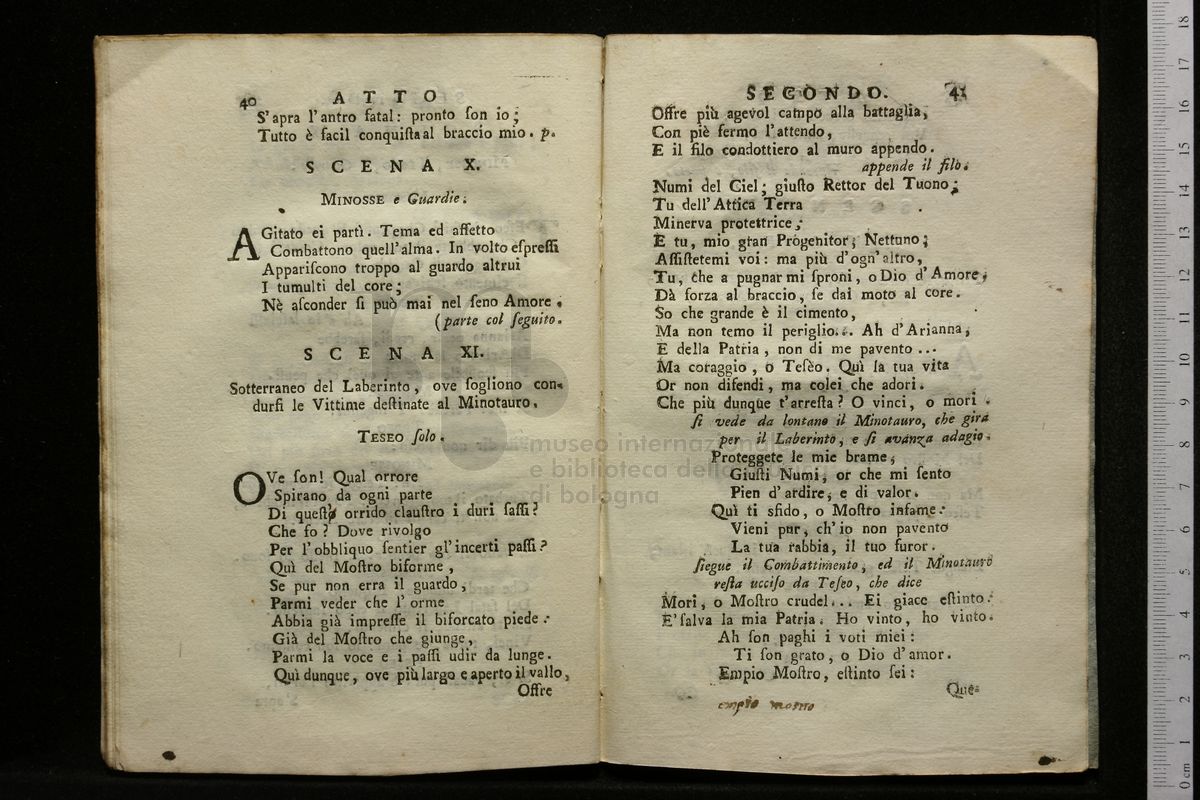 40 ATTO
S'apra l'antro fatal: pronto ſon io;
Tutto è facil conquiſta al braccio mio. p.
SCENA X.
MINOSSE e Guardie.
AGitato ei partì. Tema ed affetto
Combattono quell'alma. In volto eſpreſſi
Appariſcono troppo al guardo altrui
I tumulti del core;
Nè aſconder ſi può mai nel ſeno Amore.
(parte col ſeguito.
SCENA XI.
Sotterraneo del Laberinto, ove ſogliono con-
durſi le Vittime deſtinate al Minotauro.
TESEO ſolo.
OVe ſon! Qual orrore
Spirano da ogni parte
Di queſto orrido clauſtro i duri ſaſſi?
Che fo? Dove rivolgo
Per l'obbliquo ſentier gl'incerti paſſi?
Quì del Moſtro biforme,
Se pur non erra il guardo,
Parmi veder che l'orme
Abbia già impreſſe il biforcato piede.
Già del Moſtro che giunge,
Parmi la voce e i paſſi udir da lunge.
Quì dunque, ove più largo e aperto il vallo,
Offre
SECONDO. 41
Offre più agevol campo alla battaglia,
Con piè fermo l'attendo,
E il filo condottiero al muro appendo.
appende il filo.
Numi del Ciel; giuſto Rettor del Tuono;
Tu dell'Attica Terra
Minerva protettrice;
E tu, mio gran Progenitor, Nettuno;
Aſſiſtetemi voi: ma più d'ogn'altro,
Tu, che a pugnar mi ſproni, o Dio d'Amore,
Dà forza al braccio, ſe dai moto al core.
So che grande è il cimento,
Ma non temo il periglio... Ah d'Arianna,
E della Patria, non di me pavento...
Ma coraggio, o Teſèo. Quì la tua vita
Or non difendi, ma colei che adori.
Che più dunque t'arreſta? O vinci, o mori.
ſi vede da lontano il Minotauro, che gira
per il Laberinto, e ſi avanza adagio.
Proteggete le mie brame,
Giuſti Numi, or che mi ſento
Pien d'ardire, e di valor.
Quì ti sfido, o Moſtro infame:
Vieni pur, ch'io non pavento
La tua rabbia, il tuo furor.
ſiegue il Combattimento, ed il Minotauro
reſta ucciſo da Teſeo, che dice
Mori, o Moſtro crudel... Ei giace eſtinto.
E' ſalva la mia Patria. Ho vinto, ho vinto.
Ah ſon paghi i voti miei:
Ti ſon grato, o Dio d'amor.
Empio Moſtro, eſtinto ſei:
Que-
empio mostro
museo internazional
e biblioteca della
di bologna
18
17
16
15
14
13
12
11
10
9
8
7
6
5
4
3
2
1
0 cm